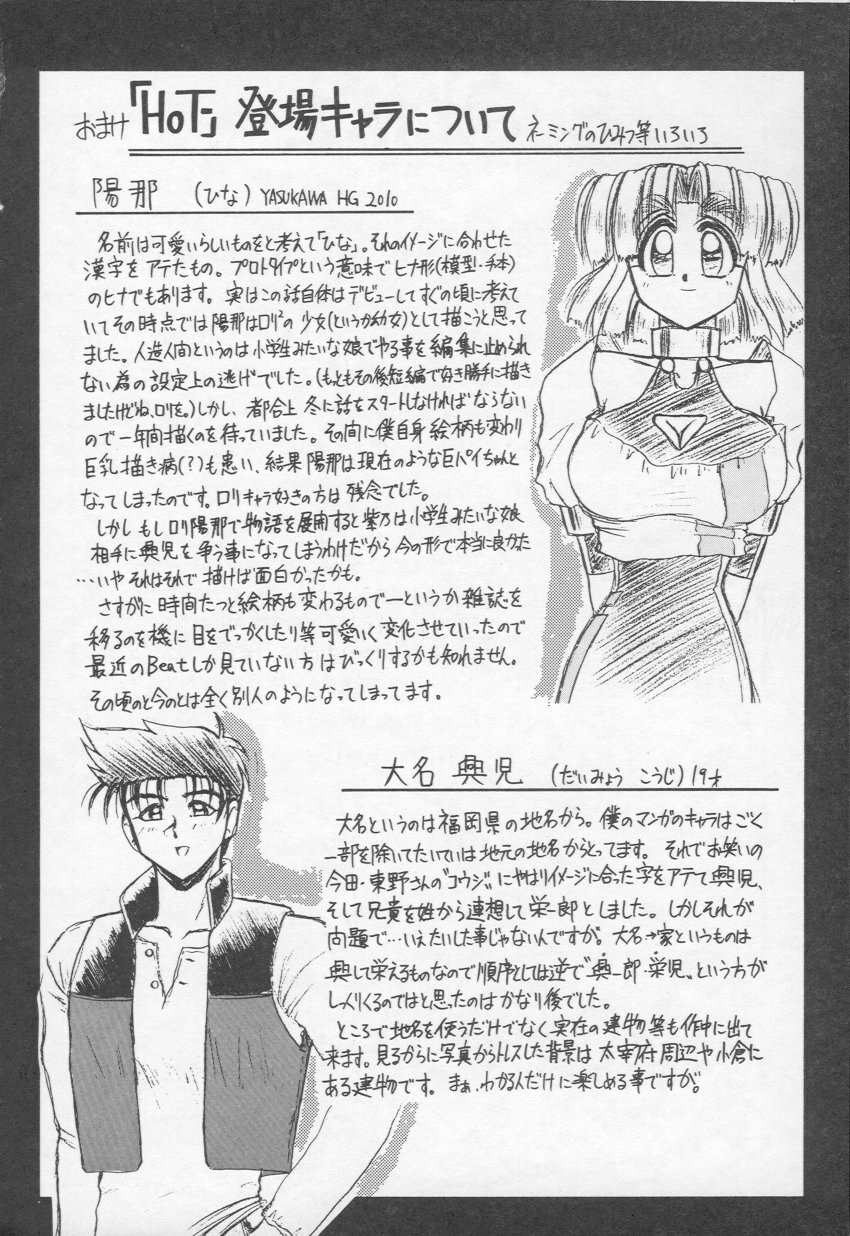 おまけ「HoT」登場キャラについて ネーミングのひみつ等いろいろ
陽那 (ひな) YASUKAWA HG 2010
名前は可愛いらしいものをと考えて「ひな」。それのイメージに合わせた
漢字をアテたもの。プロトタイプという意味でヒナ形(模型・手本)
のヒナでもあります。実はこの話自体はデビューしてすぐの頃に考えて
いてその時点では陽那はロリ²の少女(というか幼女)として描こうと思って
ました。人造人間というのは小学生みたいな娘でやる事を編集に止められ
ない為の設定上の逃げでした。(もっともその後短編で好き勝手に描き
ましたけどね、ロリを。)しかし、都合上冬に話をスタートしなければならない
ので一年間描くのを待っていました。その間に僕自身絵柄も変わり
巨乳描き病(?)も患い、結果陽那は現在のような巨パイちゃんと
なってしまったのです。ロリキャラ好きの方は残念でした。
しかしもしロリ陽那で物語を展開すると紫乃は小学生みたいな娘
相手に興児を争う事になってしまうわけだから今の形で本当に良かった
…いやそれはそれで描けば面白かったかも。
さすがに時間たつと絵柄も変わるもので―というか雑誌を
移るのを機に目をでっかくしたり等可愛いく変化させていったので
最近のBeatしか見ていない方はびっくりするかも知れません。
その頃のと今のとは全く別人のようになってしまってます。
大名 興児 (だいみょう こうじ) 19才
大名というのは福岡県の地名から。僕のマンガのキャラはごく
一部を除いてたいていは地元の地名からとってます。それでお笑いの
今田・東野さんの"コウジ"にやはりイメージに合った字をアテて興児、
そして兄貴を姓から連想して栄一郎としました。しかしそれが
問題で…いえたいした事じゃないんですが。大名→家というものは
興して栄えるものなので順序としては逆で"興一郎・栄児"という方が
しっくりくるのではと思ったのはかなり後でした。
ところで地名を使うだけでなく実在の建物等も作中に出て
来ます。見るからに写真からトレスした背景は太宰府周辺や小倉に
ある建物です。まぁ、わかる人だけに楽しめる事ですが。